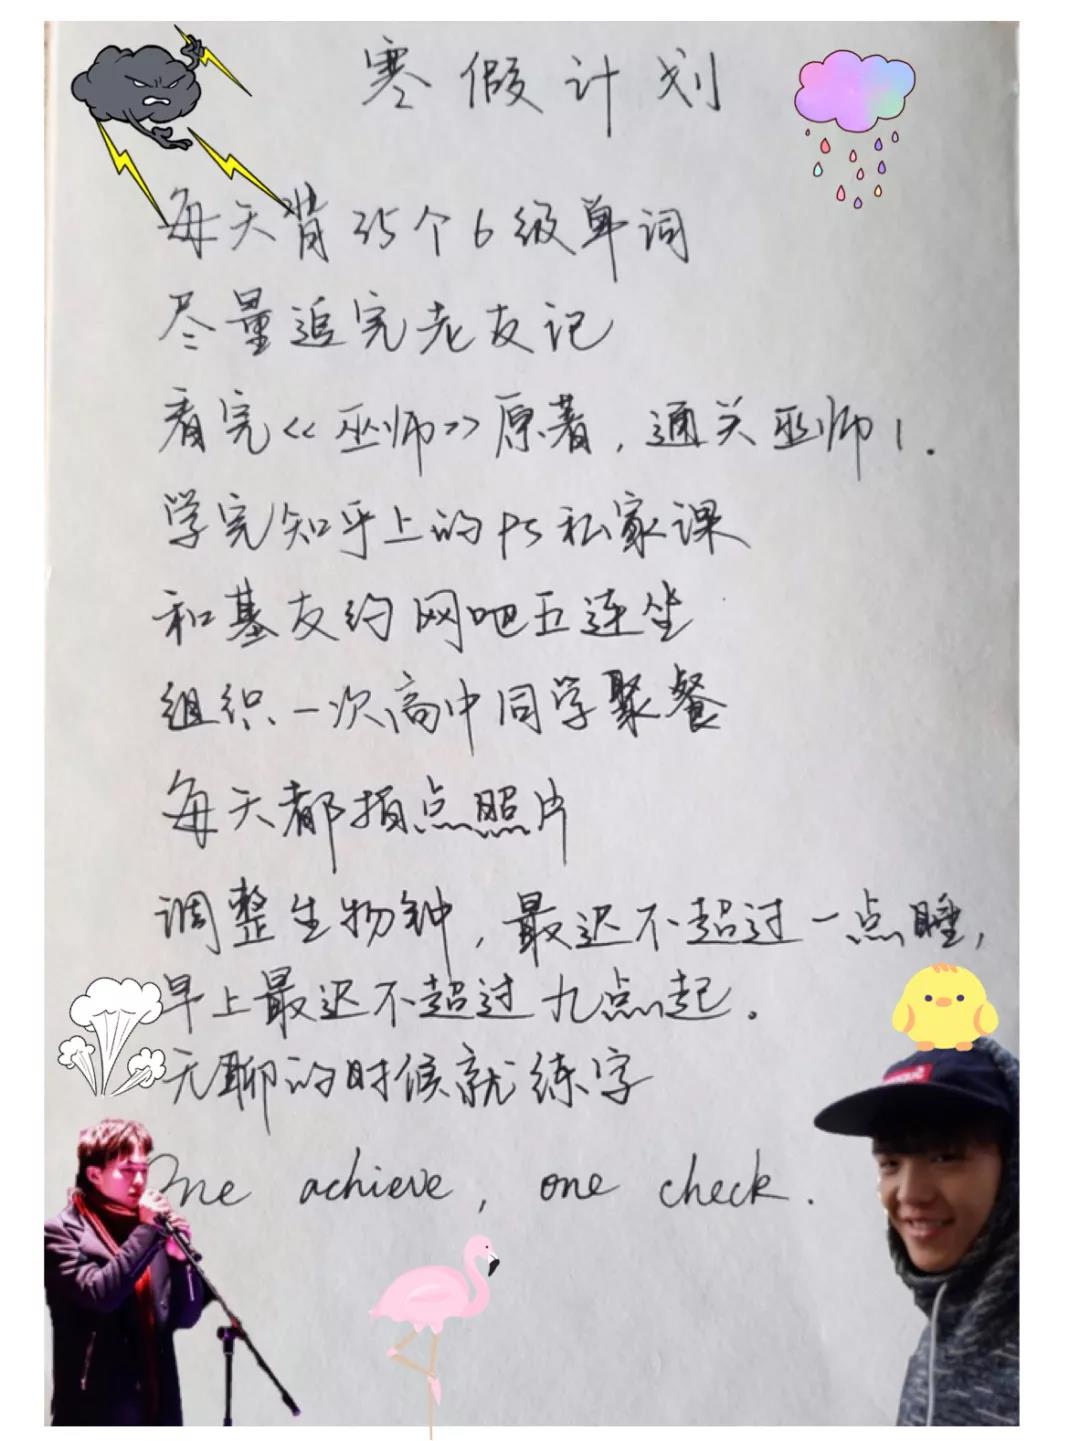 寒假计划
每天背35个6级单词
尽量追完老友记
看完<<巫师>>原著,通关巫师1.
学完知乎上的PS私家课
和基友约网吧五连坐
组织一次高中同学聚餐
每天都拍点照片
调整生物钟,最迟不超过一点睡,
早上最迟不超过九点起。
无聊的时候就练字
One achieve, one check.